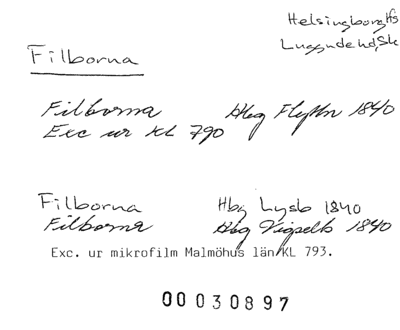 Helsingborg Hfs
Luggude hd, Sk
Filborna
Filborna Hbg Flyttn 1840
Exc ur KL 790
Filborna Hbg Lysb 1840
Filborna Hbg Vigselb 1840
Exc. ur mikrofilm Malmöhus län KL 793.
00030897